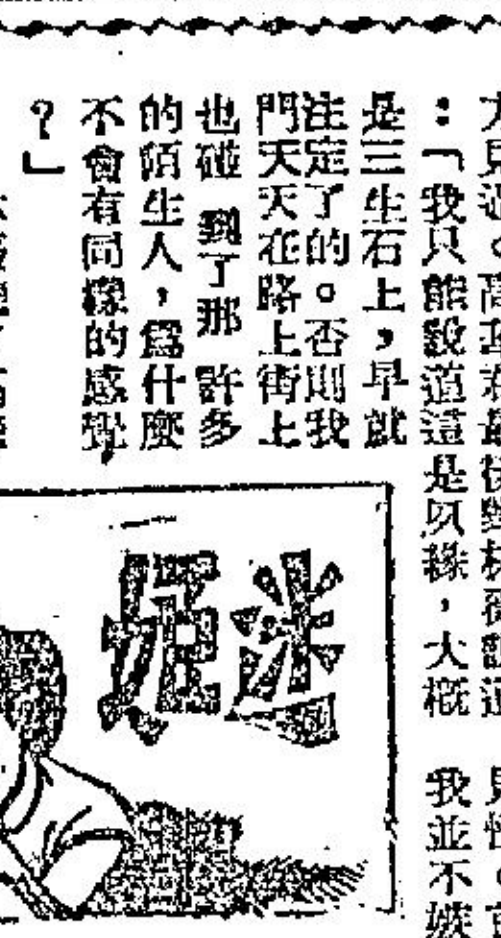 ：「我只能說道這是夙緣，大概
是三生石上，早就
注定了的。否則我
門天天在路上街上
也碰到了那許多
的陌生人，爲什麼
不會有同樣的感覺
？」
迷姬
我並不嫉